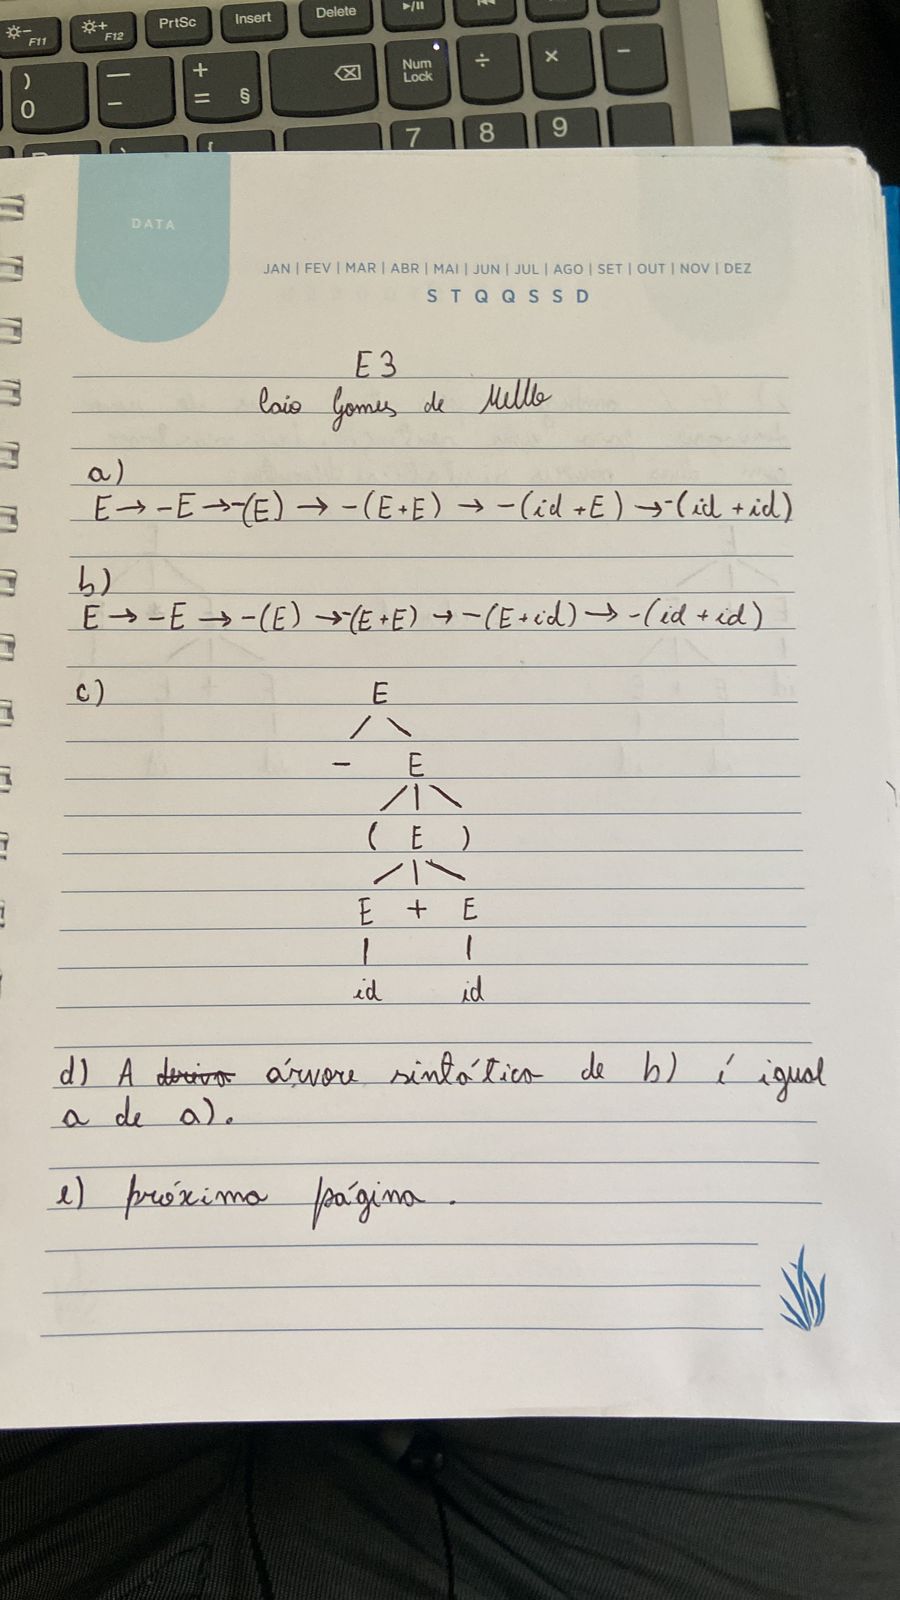 F11
F12
PrtSc
Insert
Delete
)
0
—
-
+
= §
Num
Lock
÷
×
-
7
8
9
DATA
JAN | FEV | MAR | ABR | MAI | JUN | JUL | AGO | SET | OUT | NOV | DEZ
S T Q Q S S D
E3
Caio Gomes de Mello
a)
E → -E → -(E) → -(E+E) → -(id +E) → -(id + id)
b)
E → -E → -(E) → -(E+E) → -(E+id) → -(id + id)
c)
E
- E
( E )
E + E
id id
d) A deriva árvore sintática de b) é igual
a de a).
e) próxima página.